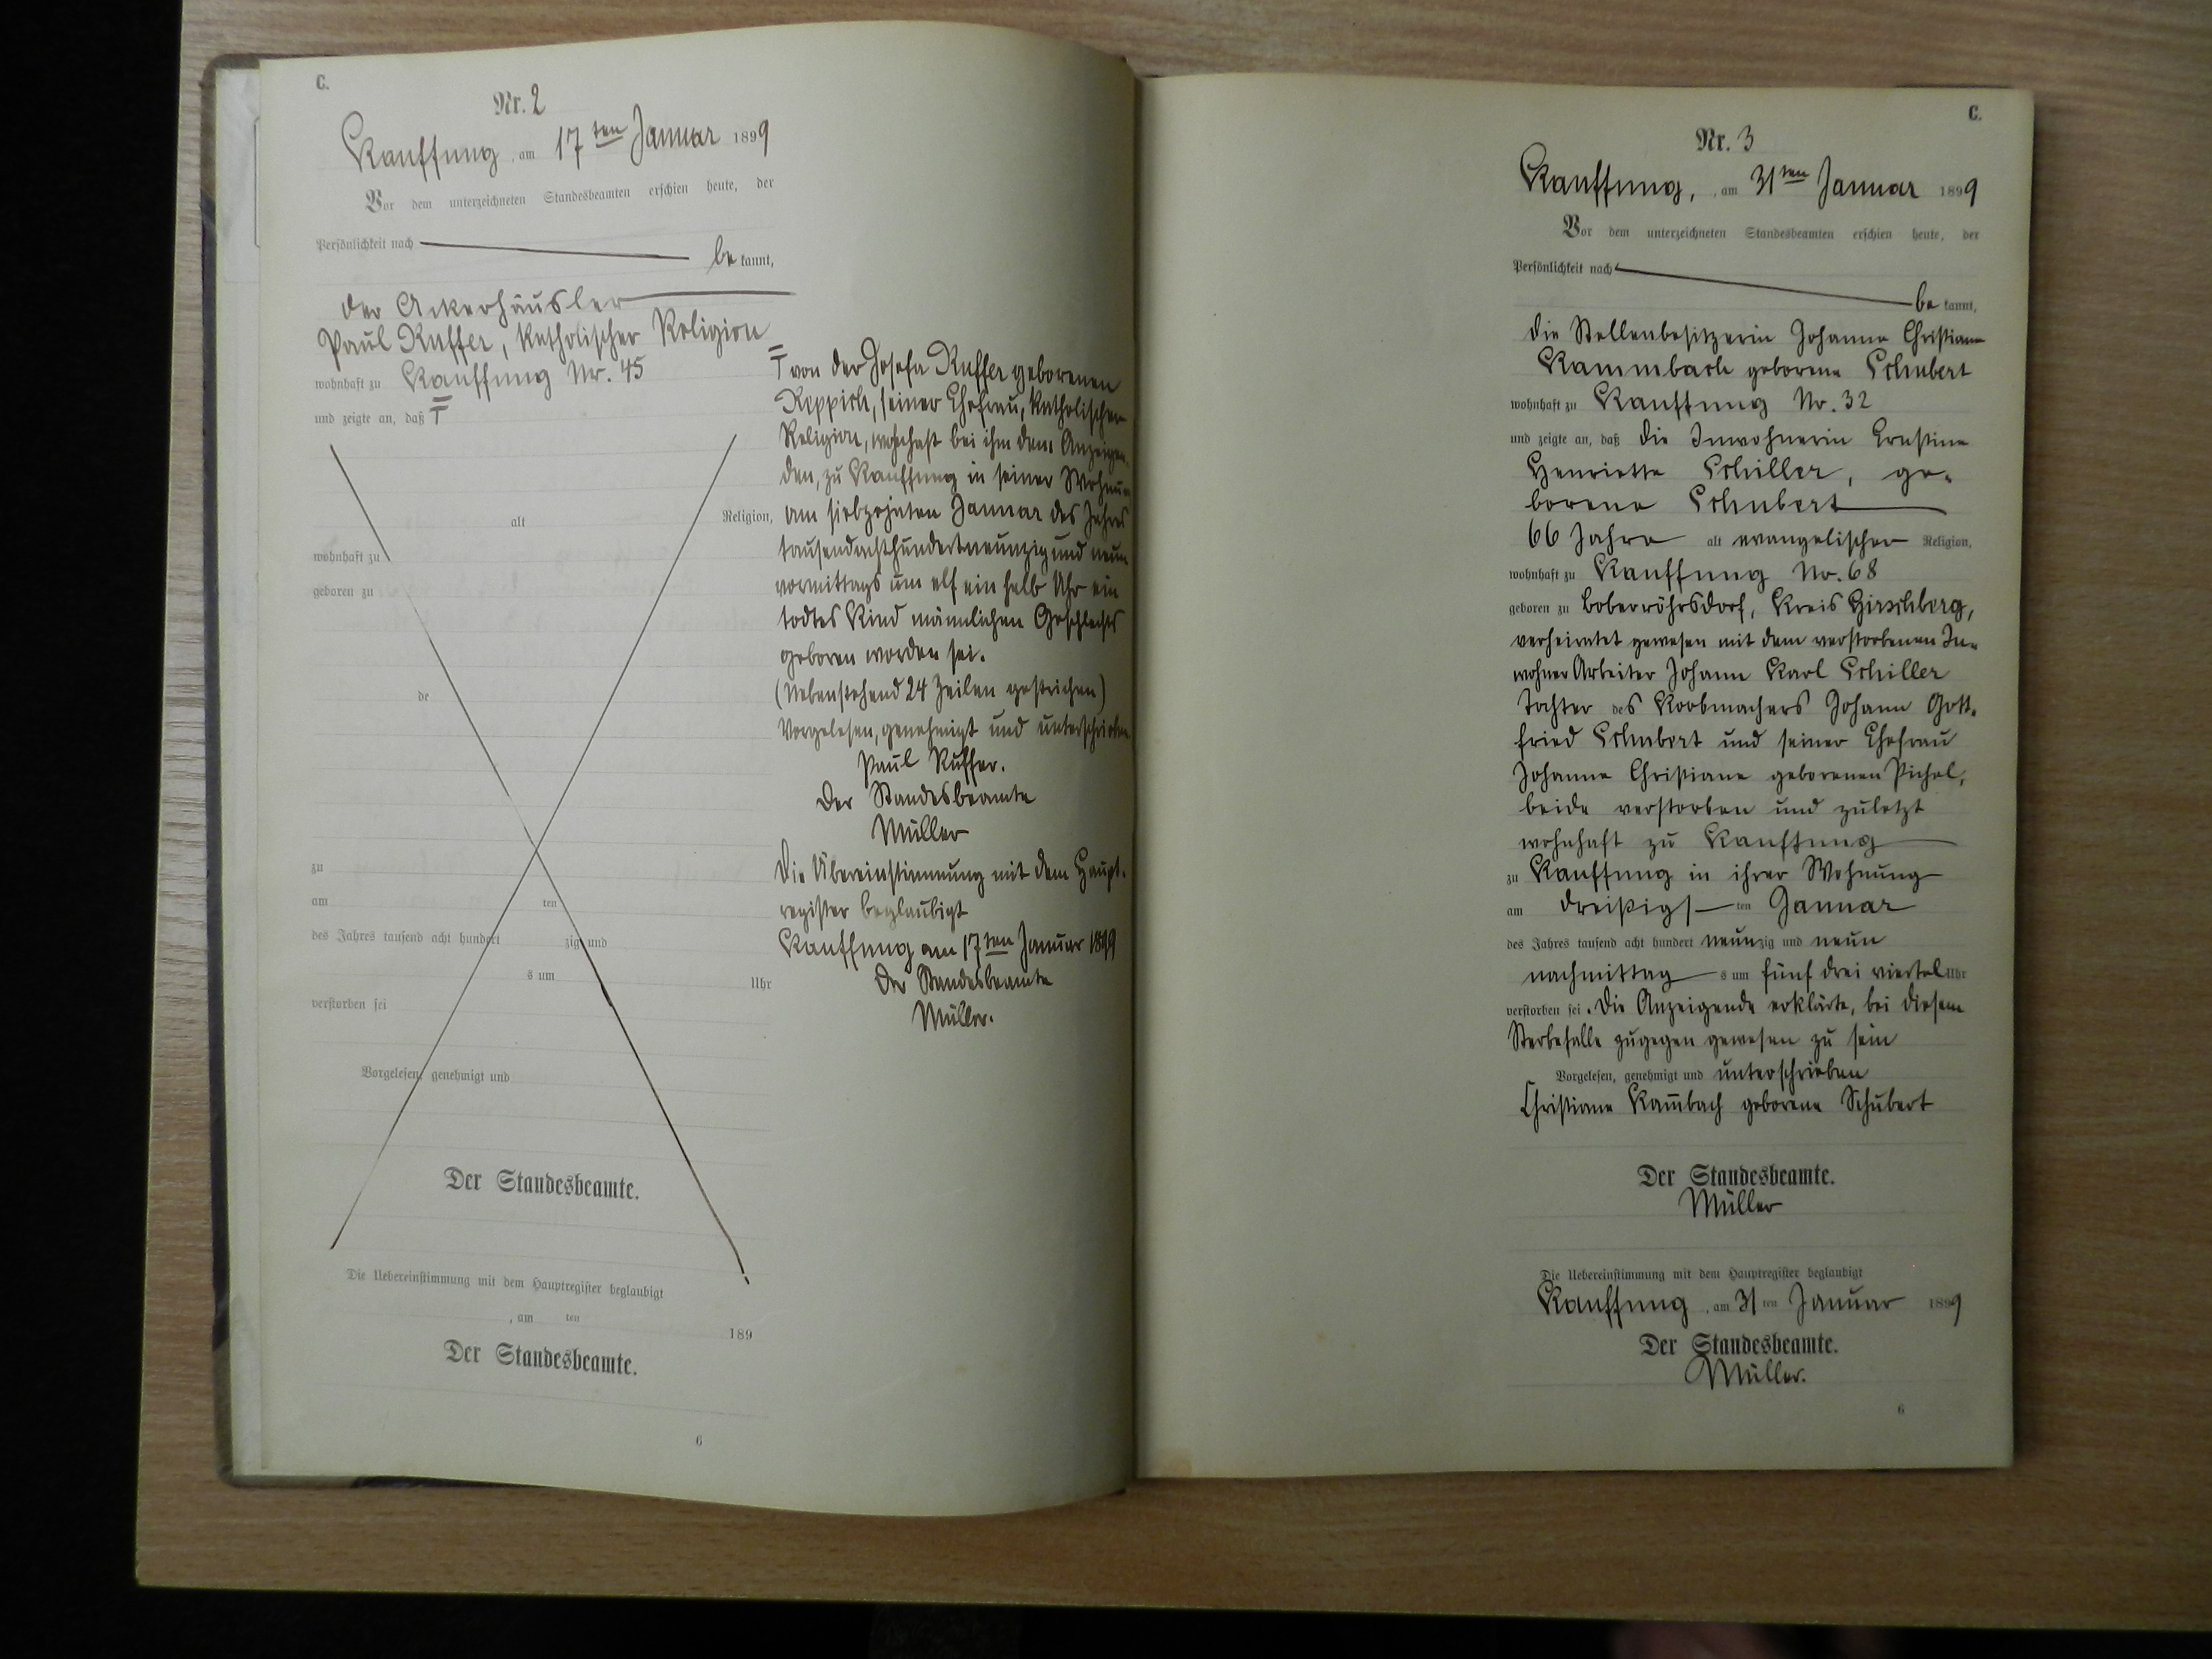 C.
Nr. 2
Kauffung, am 17ten Januar 1899
Vor dem unterzeichneten Standesbeamten erschien heute, der
Persönlichkeit nach
bekannt,
der Ackerhäusler
Paul Ruffer, katholischer Religion
wohnhaft zu Kauffung Nr. 45
und zeigte an, daß
alt Religion,
wohnhaft zu
geboren zu
de
zu
am ten
des Jahres tausend acht hundert zig und
s um Uhr
verstorben sei
Vorgelesen, genehmigt und
Der Standesbeamte.
Die Uebereinstimmung mit dem Hauptregister beglaubigt
, am ten 189
Der Standesbeamte.
6
von der Josefa Ruffer geborenen
Reppich, seiner Ehefrau, katholischer
Religion, wohnhaft bei ihm dem Anzeigen-
den, zu Kauffung in seiner Wohnung
am siebzehnten Januar des Jahres
tausendachthundertneunzig und neun
vormittags um elf ein halb Uhr ein
todtes Kind männlichen Geschlechts
geboren worden sei.
(Nebenstehend 24 Zeilen gestrichen)
Vorgelesen, genehmigt und unterschrieben
Paul Ruffer.
Der Standesbeamte
Müller
Die Übereinstimmung mit dem Haupt-
register beglaubigt
Kauffung am 17ten Januar 1899
Der Standesbeamte
Müller.
C.
Nr. 3
Kauffung, , am 31ten Januar 1899
Vor dem unterzeichneten Standesbeamten erschien heute, der
Persönlichkeit nach
bekannt,
die Stellenbesitzerin Johanne Christiane
Kammbach geborene Schubert
wohnhaft zu Kauffung No. 32
und zeigte an, daß die Inwohnerin Ernstine
Henriette Schiller, ge-
borene Schubert
66 Jahre alt evangelischer Religion,
wohnhaft zu Kauffung No. 68
geboren zu Boberröhrsdorf, Kreis Hirschberg,
verheiratet gewesen mit dem verstorbenen In-
wohner Arbeiter Johann Karl Schiller
Tochter des Korbmachers Johann Gott-
fried Schubert und seiner Ehefrau
Johanne Christiane geborenen Pichel,
beide verstorben und zuletzt
wohnhaft zu Kauffung
zu Kauffung in ihrer Wohnung
am dreißigsten Januar
des Jahres tausend acht hundert neunzig und neun
nachmittags um fünf drei viertel Uhr
verstorben sei. Die Anzeigende erklärte, bei diesem
Sterbefalle zugegen gewesen zu sein
Vorgelesen, genehmigt und unterschrieben
Christiane Kam̄bach geborene Schubert
Der Standesbeamte.
Müller
Die Uebereinstimmung mit dem Hauptregister beglaubigt
Kauffung, am 31ten Januar 1899
Der Standesbeamte.
Müller.
6